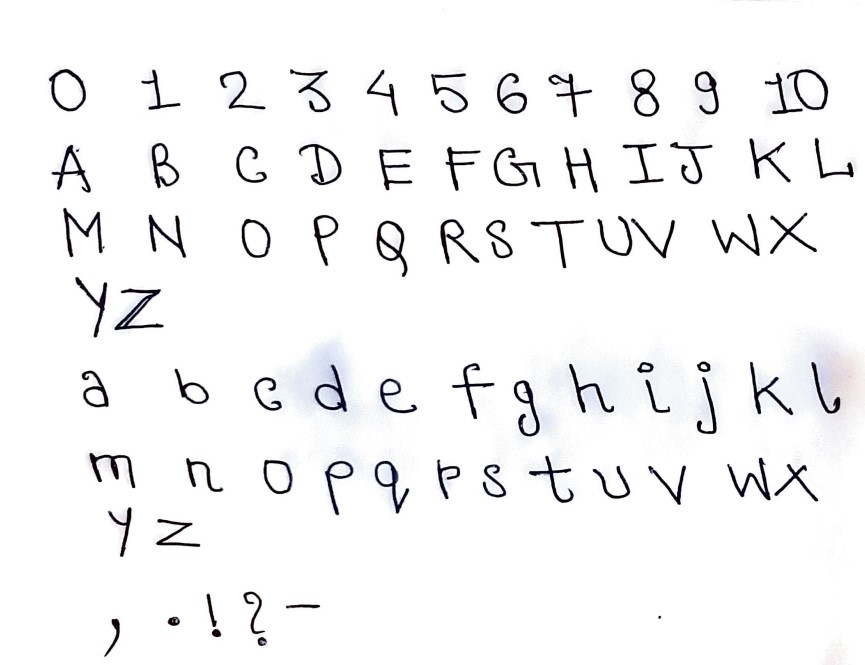 0 1 2 3 4 5 6 7 8 9 10
A B C D E F G H I J K L
M N O P Q R S T U V W X
Y Z
a b c d e f g h i j k l
m n o p q r s t u v w x
y z
, . ! ? -